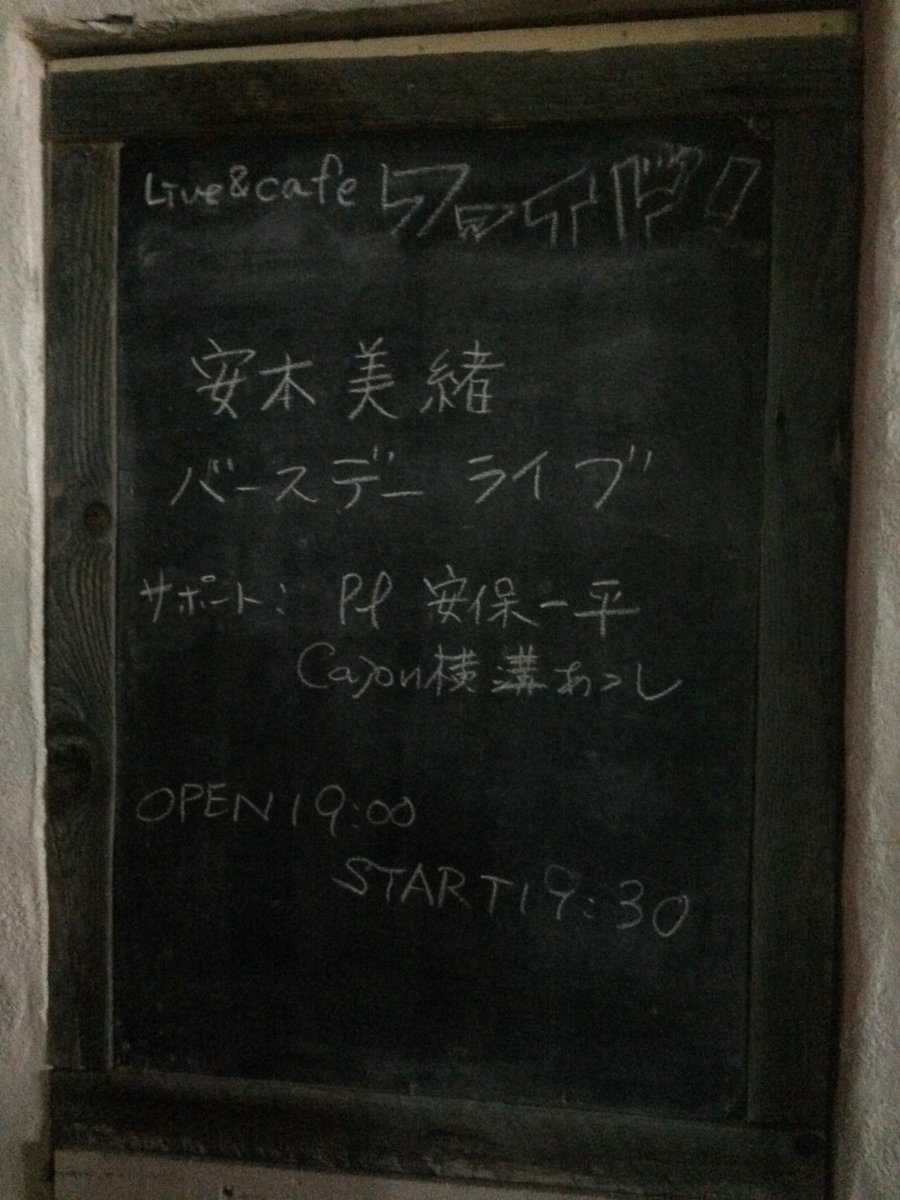 Live&cafe
安本美緒
バースデー ライブ
サポート: Pf 安保一平
Cajon横溝あつし
OPEN19:00
START19:30